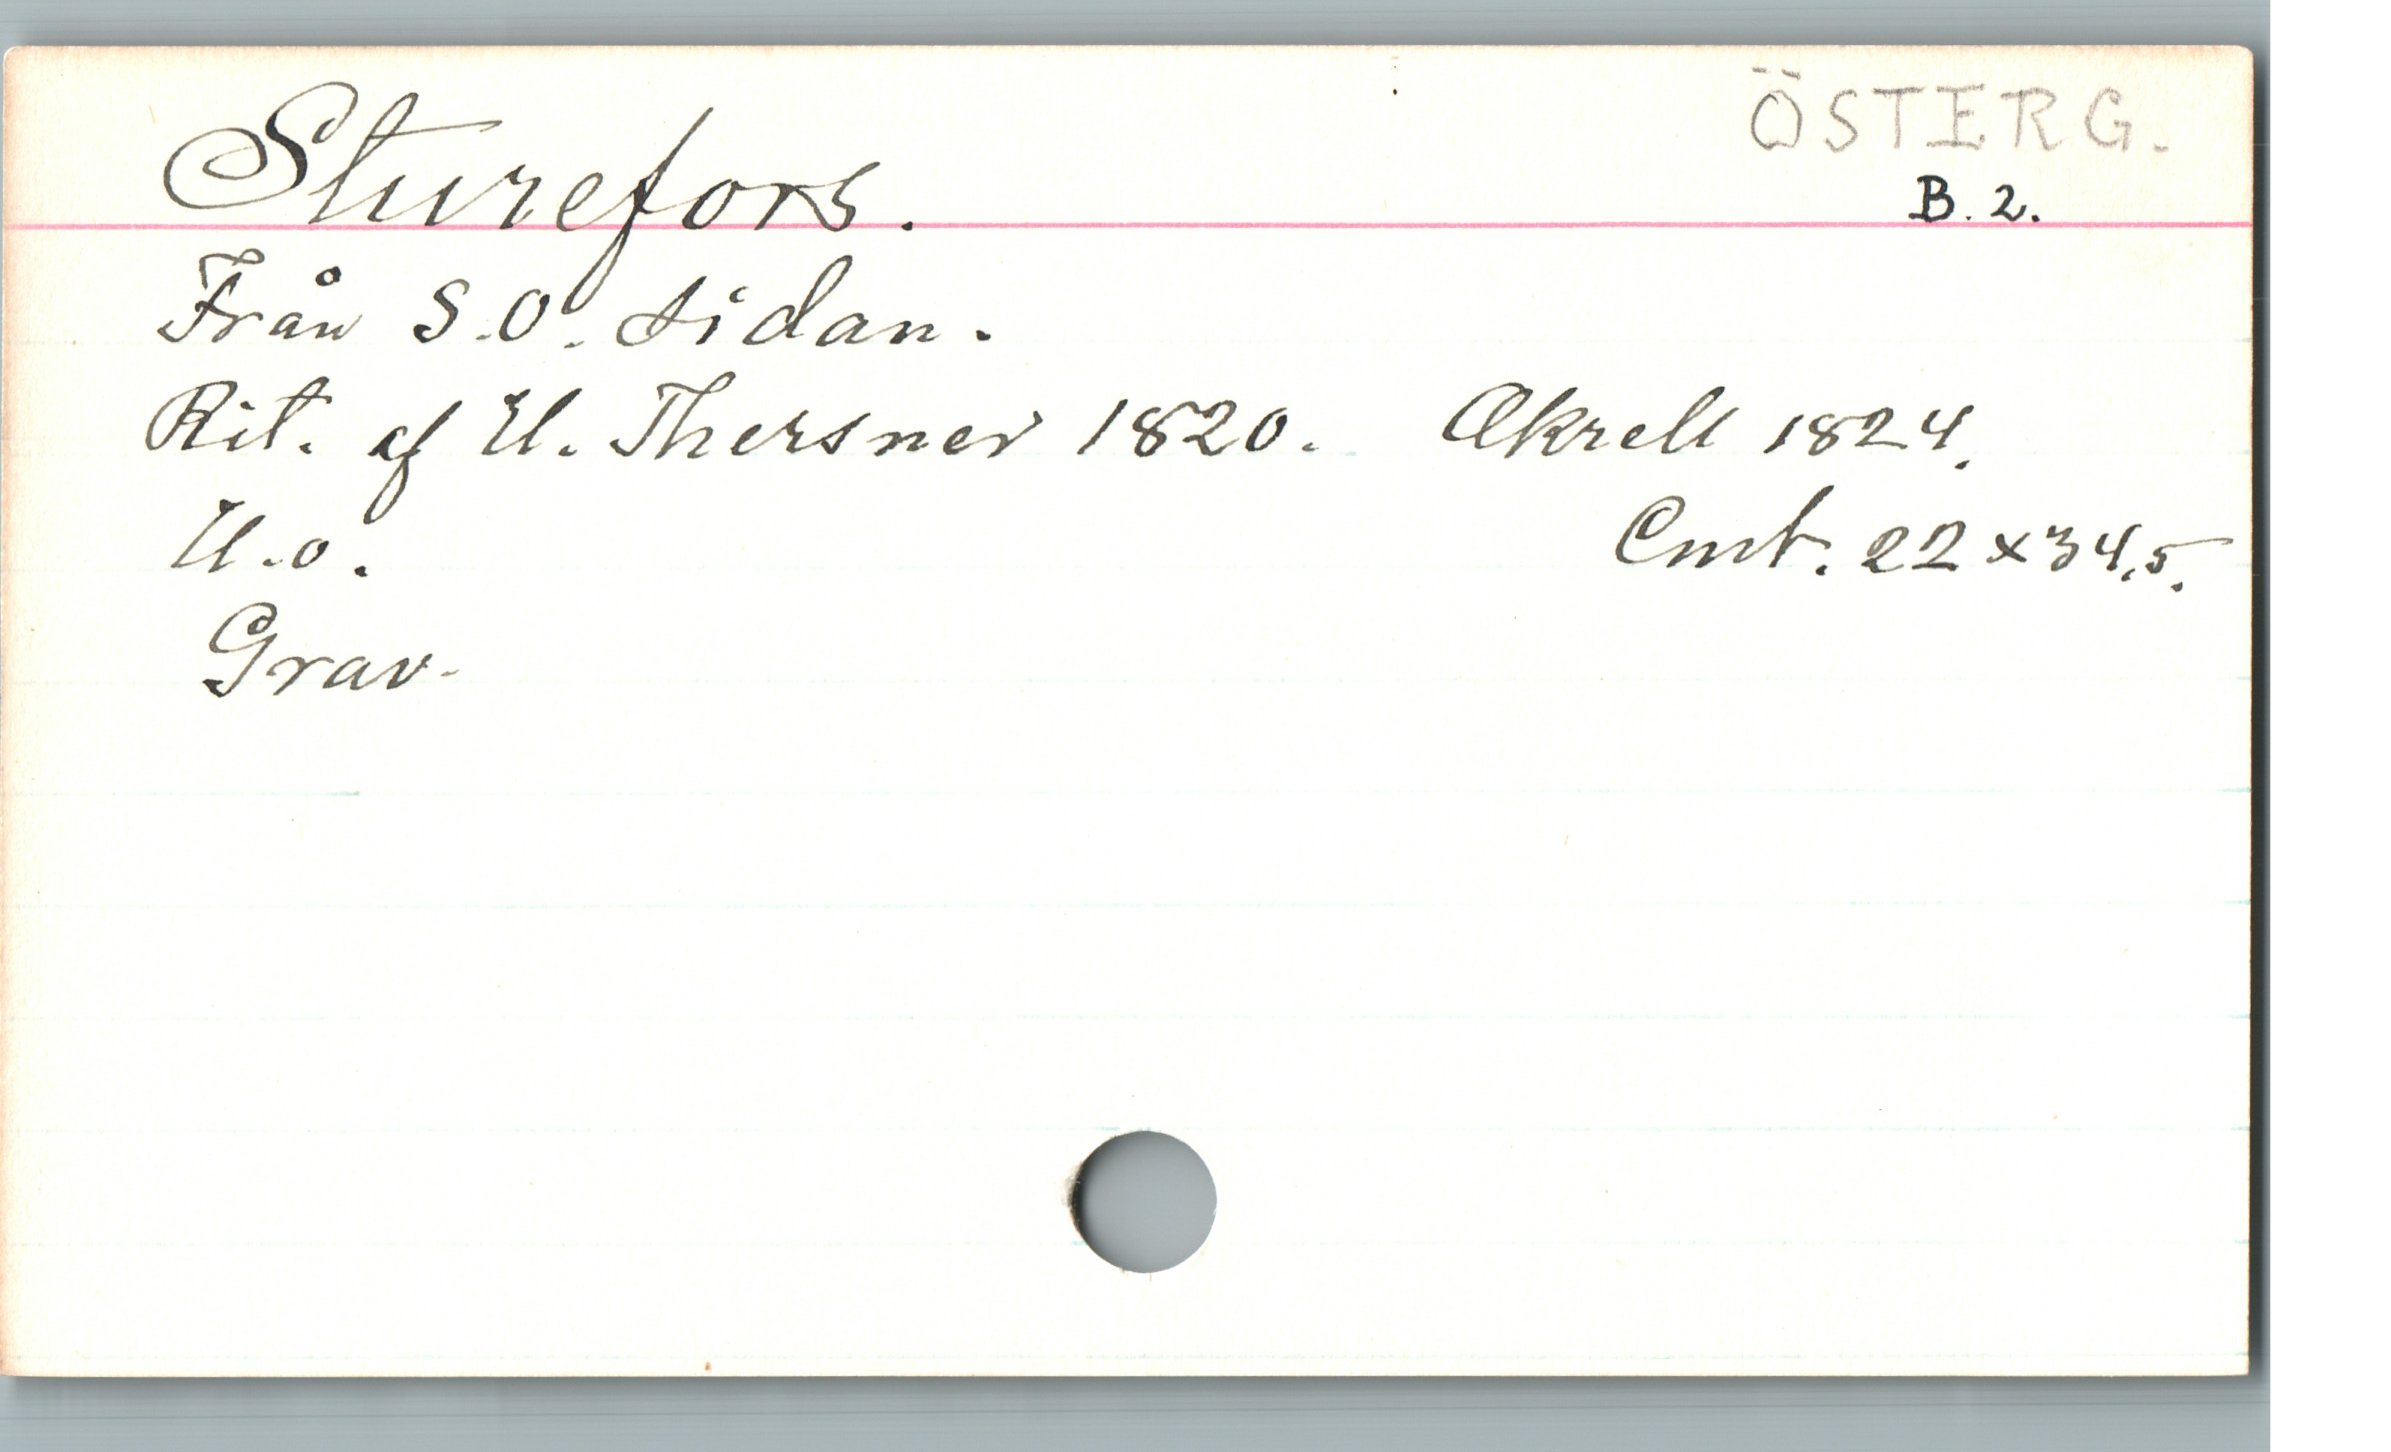 Sturefors.
ÖSTERG.
B. 2.
Från S.O. sidan.
Rit. af U. Thersner 1820. Akrell 1824.
U.o. Cmt. 22 x 34,5.
Grav.